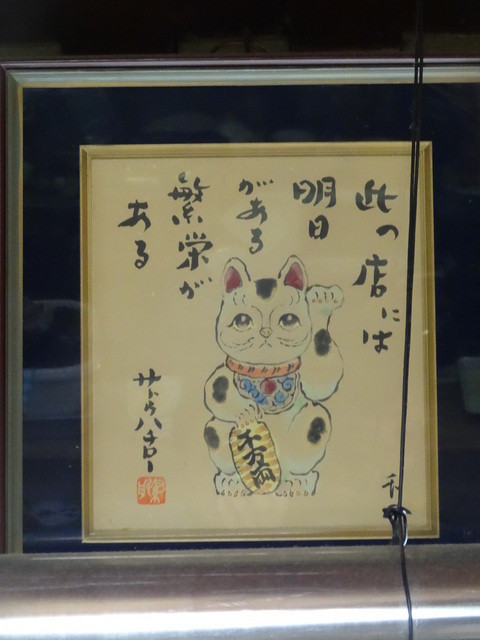 此の店には
明日
がある
繁栄が
ある
サトウハチロー
千万両